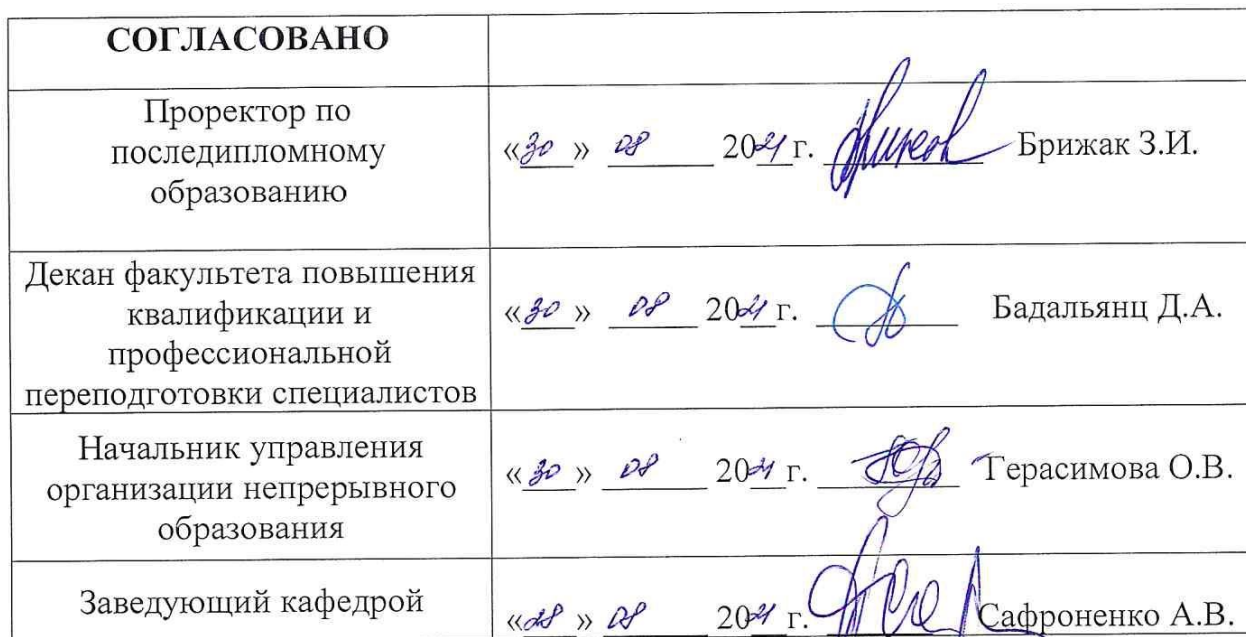 СОГЛАСОВАНО
Проректор по
последипломному
образованию
«30» 08 2021 г. Брижак З.И.
Декан факультета повышения
квалификации и
профессиональной
переподготовки специалистов
«30» 08 2021 г. Бадальянц Д.А.
Начальник управления
организации непрерывного
образования
«30» 08 2021 г. Герасимова О.В.
Заведующий кафедрой
«28» 08 2021 г. Сафроненко А.В.